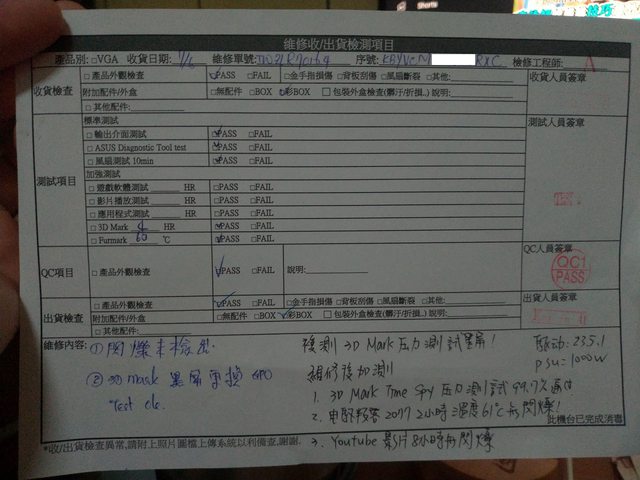 維修收/出貨檢測項目
產品別:□VGA 收貨日期: 7/6 維修單號: 序號: 檢修工程師: A
收貨檢查
□ 產品外觀檢查 ☑PASS □FAIL □金手指損傷 □背板刮傷 □風扇斷裂 □其他:
附加配件/外盒 □無配件 □BOX ☑彩BOX □ 包裝外盒檢查(髒汙/折損..) 說明:
□ 其他配件:
收貨人員簽章
測試項目
標準測試
□ 輸出介面測試 ☑PASS □FAIL
□ ASUS Diagnostic Tool test ☑PASS □FAIL
□ 風扇測試 10min ☑PASS □FAIL
加強測試
□ 遊戲軟體測試 HR □PASS □FAIL
□ 影片播放測試 HR □PASS □FAIL
□ 應用程式測試 HR □PASS □FAIL
□ 3D Mark 4 HR ☑PASS □FAIL
□ Furmark 65 ℃ ☑PASS □FAIL
測試人員簽章
QC項目
□ 產品外觀檢查 ☑PASS □FAIL 說明:
QC人員簽章
QC1
PASS
出貨檢查
□ 產品外觀檢查 ☑PASS □FAIL □金手指損傷 □背板刮傷 □風扇斷裂 □其他:
附加配件/外盒 □無配件 □BOX ☑彩BOX □包裝外盒檢查(髒汙/折損..) 說明:
□ 其他配件:
出貨人員簽章
維修內容:
① 閃爍未檢出
② 3D mark 黑屏更換 GPU
Test ok.
複測 3D Mark 压力測試黑屏!
維修後加測
1. 3D Mark Time Spy 压力測試 99.7%通过
2. 电馭叛客 2077 2小時 溫度61°C 無閃爍!
3. Youtube 影片 8小時無閃爍
駆动: 23.5.1
psu: 1000W
此機台已完成消毒
*收/出貨檢查異常,請附上照片圖檔上傳系統以利備查,謝謝.